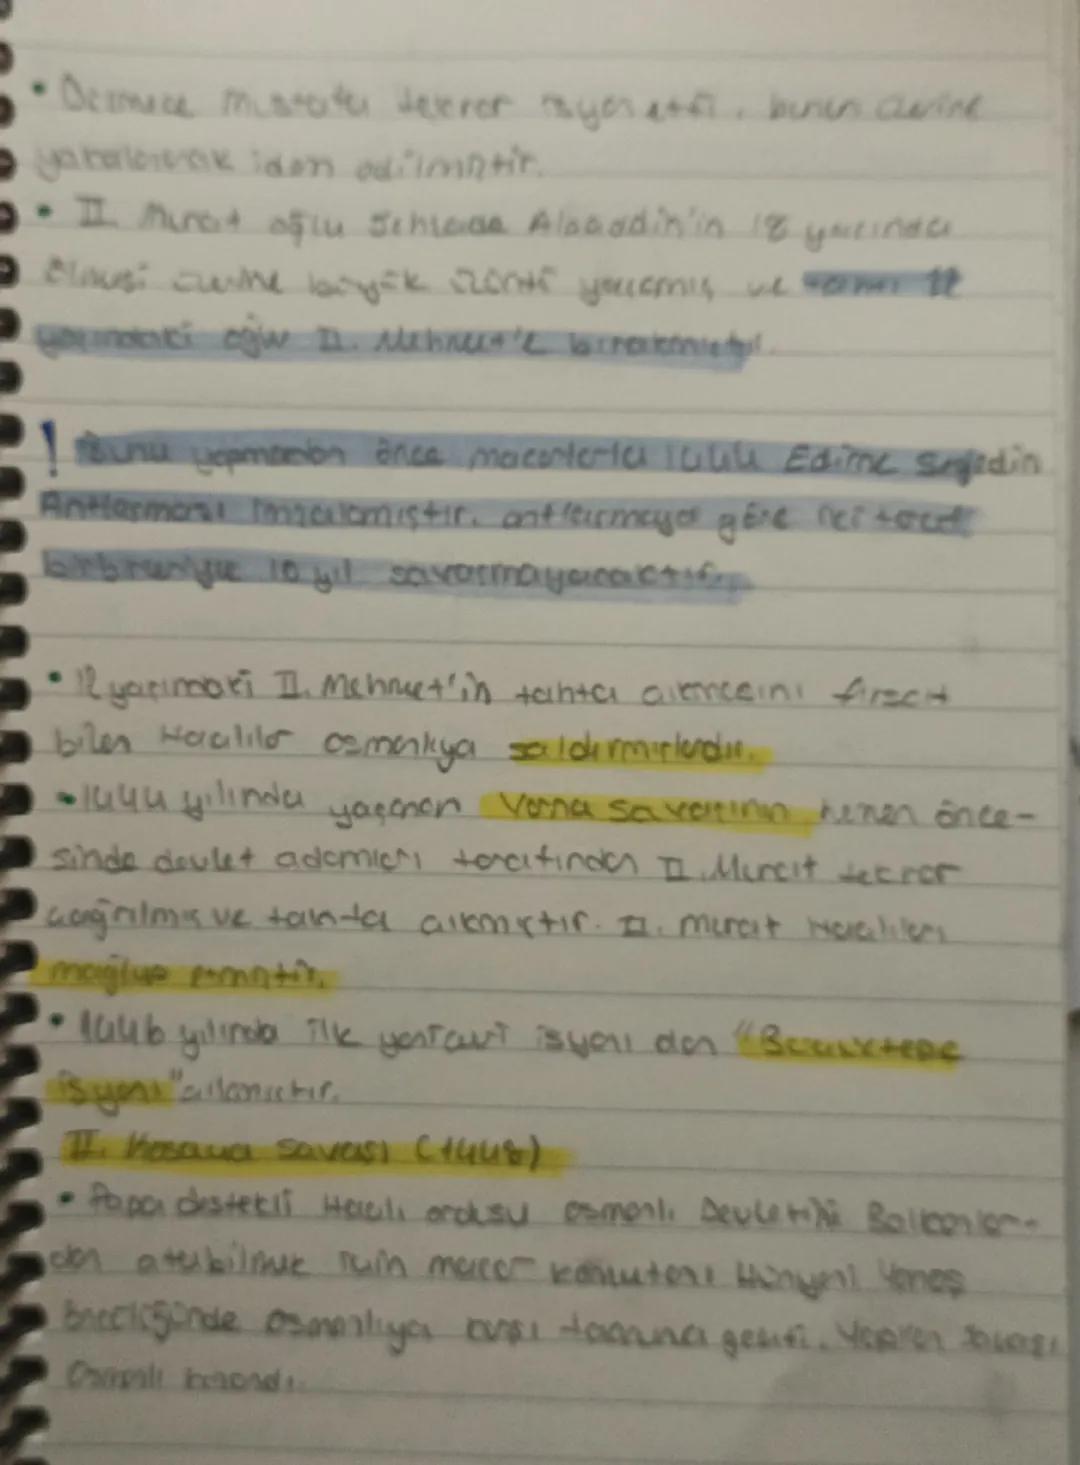 • Düzmece Mustafa tekrar isyan etti, bunun üzerine
yakalanarak idam edilmiştir.
• II. Murat oğlu Şehzade Alaaddin'in 18 yaşında
ölmesi üzerine büyük üzüntü yaşamış ve tahtı 12
yaşındaki oğlu II. Mehmet'e bırakmıştır.
! Bunu yapmadan önce macarlarla 1444 Edirne Segedin
Antlaşması imzalamıştır. antlaşmaya göre iki taraf
birbirleriyle 10 yıl savaşmayacaktır.
• 12 yaşındaki II. Mehmet'in tahta çıkmasını fırsat
bilen Haçlılar osmanlıya saldırmışlardır.
• 1444 yılında yaşanan Varna savaşının hemen önce-
sinde devlet adamları tarafından II. Murat tekrar
çağrılmış ve tahta çıkmıştır. II. murat Haçlıları
mağlup etmiştir.
• 1446 yılında ilk yeniçeri isyanı olan "Buçuktepe
isyanı" çıkmıştır.
II. Kosova savaşı (1448)
• Papa destekli Haçlı ordusu osmanlı Devletini Balkanlar-
dan atabilmek için macar komutanı Hünyadi Yanoş
öncülüğünde osmanlıya karşı taarruza geçti. Yapılan savaşı
Osmanlı kazandı.